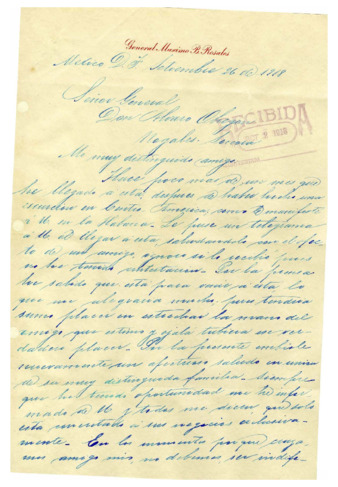 General Maximo B. Rosales
Mexico D. F. Setiembre 26 de 1918
Señor General
Don Alvaro Obregon
RECIBIDA
Nogales. Sonora
Mi muy distinguido amigo.
Hace poco mas de un mes que
he llegado a esta despues de haber hecho una
en Centro America, como manifesté
a U. en la Habana. Le puse un telegrama
a U. al llegar a esta saludandolo con el afec-
to de un amigo, ignoro si lo recibió pues
no he tenido contestacion. Por la prensa
he sabido que está para venir a esta lo
que me alegraria mucho pues tendria
sumo placer en estrechar la mano del
amigo que estimo y ojala tubiera ese ver-
dadero placer. Por la presente enviole
nuevamente un afectuoso saludo en union
de su muy distinguida familia. Siempre
que he tenido oportunidad me he infor-
mado de U. y todos me dicen que solo
esta concretado a sus negocios exclusiva-
mente. En los momentos porque cruza-
mos amigo mio, no debemos ser indife-